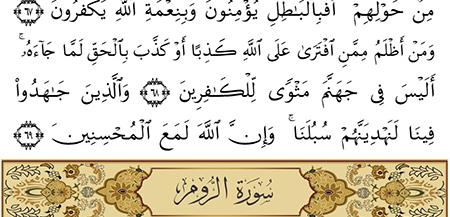 مِنْ حَوْلِهِمْ ۚ أَفَبِالْبَاطِلِ يُؤْمِنُونَ وَبِنِعْمَةِ اللَّهِ يَكْفُرُونَ ﴿٦٧﴾
وَمَنْ أَظْلَمُ مِمَّنِ افْتَرَىٰ عَلَى اللَّهِ كَذِبًا أَوْ كَذَّبَ بِالْحَقِّ لَمَّا جَاءَهُ ۚ
أَلَيْسَ فِي جَهَنَّمَ مَثْوًى لِّلْكَافِرِينَ ﴿٦٨﴾ وَالَّذِينَ جَاهَدُوا
فِينَا لَنَهْدِيَنَّهُمْ سُبُلَنَا ۚ وَإِنَّ اللَّهَ لَمَعَ الْمُحْسِنِينَ ﴿٦٩﴾
سُورَةُ الرُّومِ